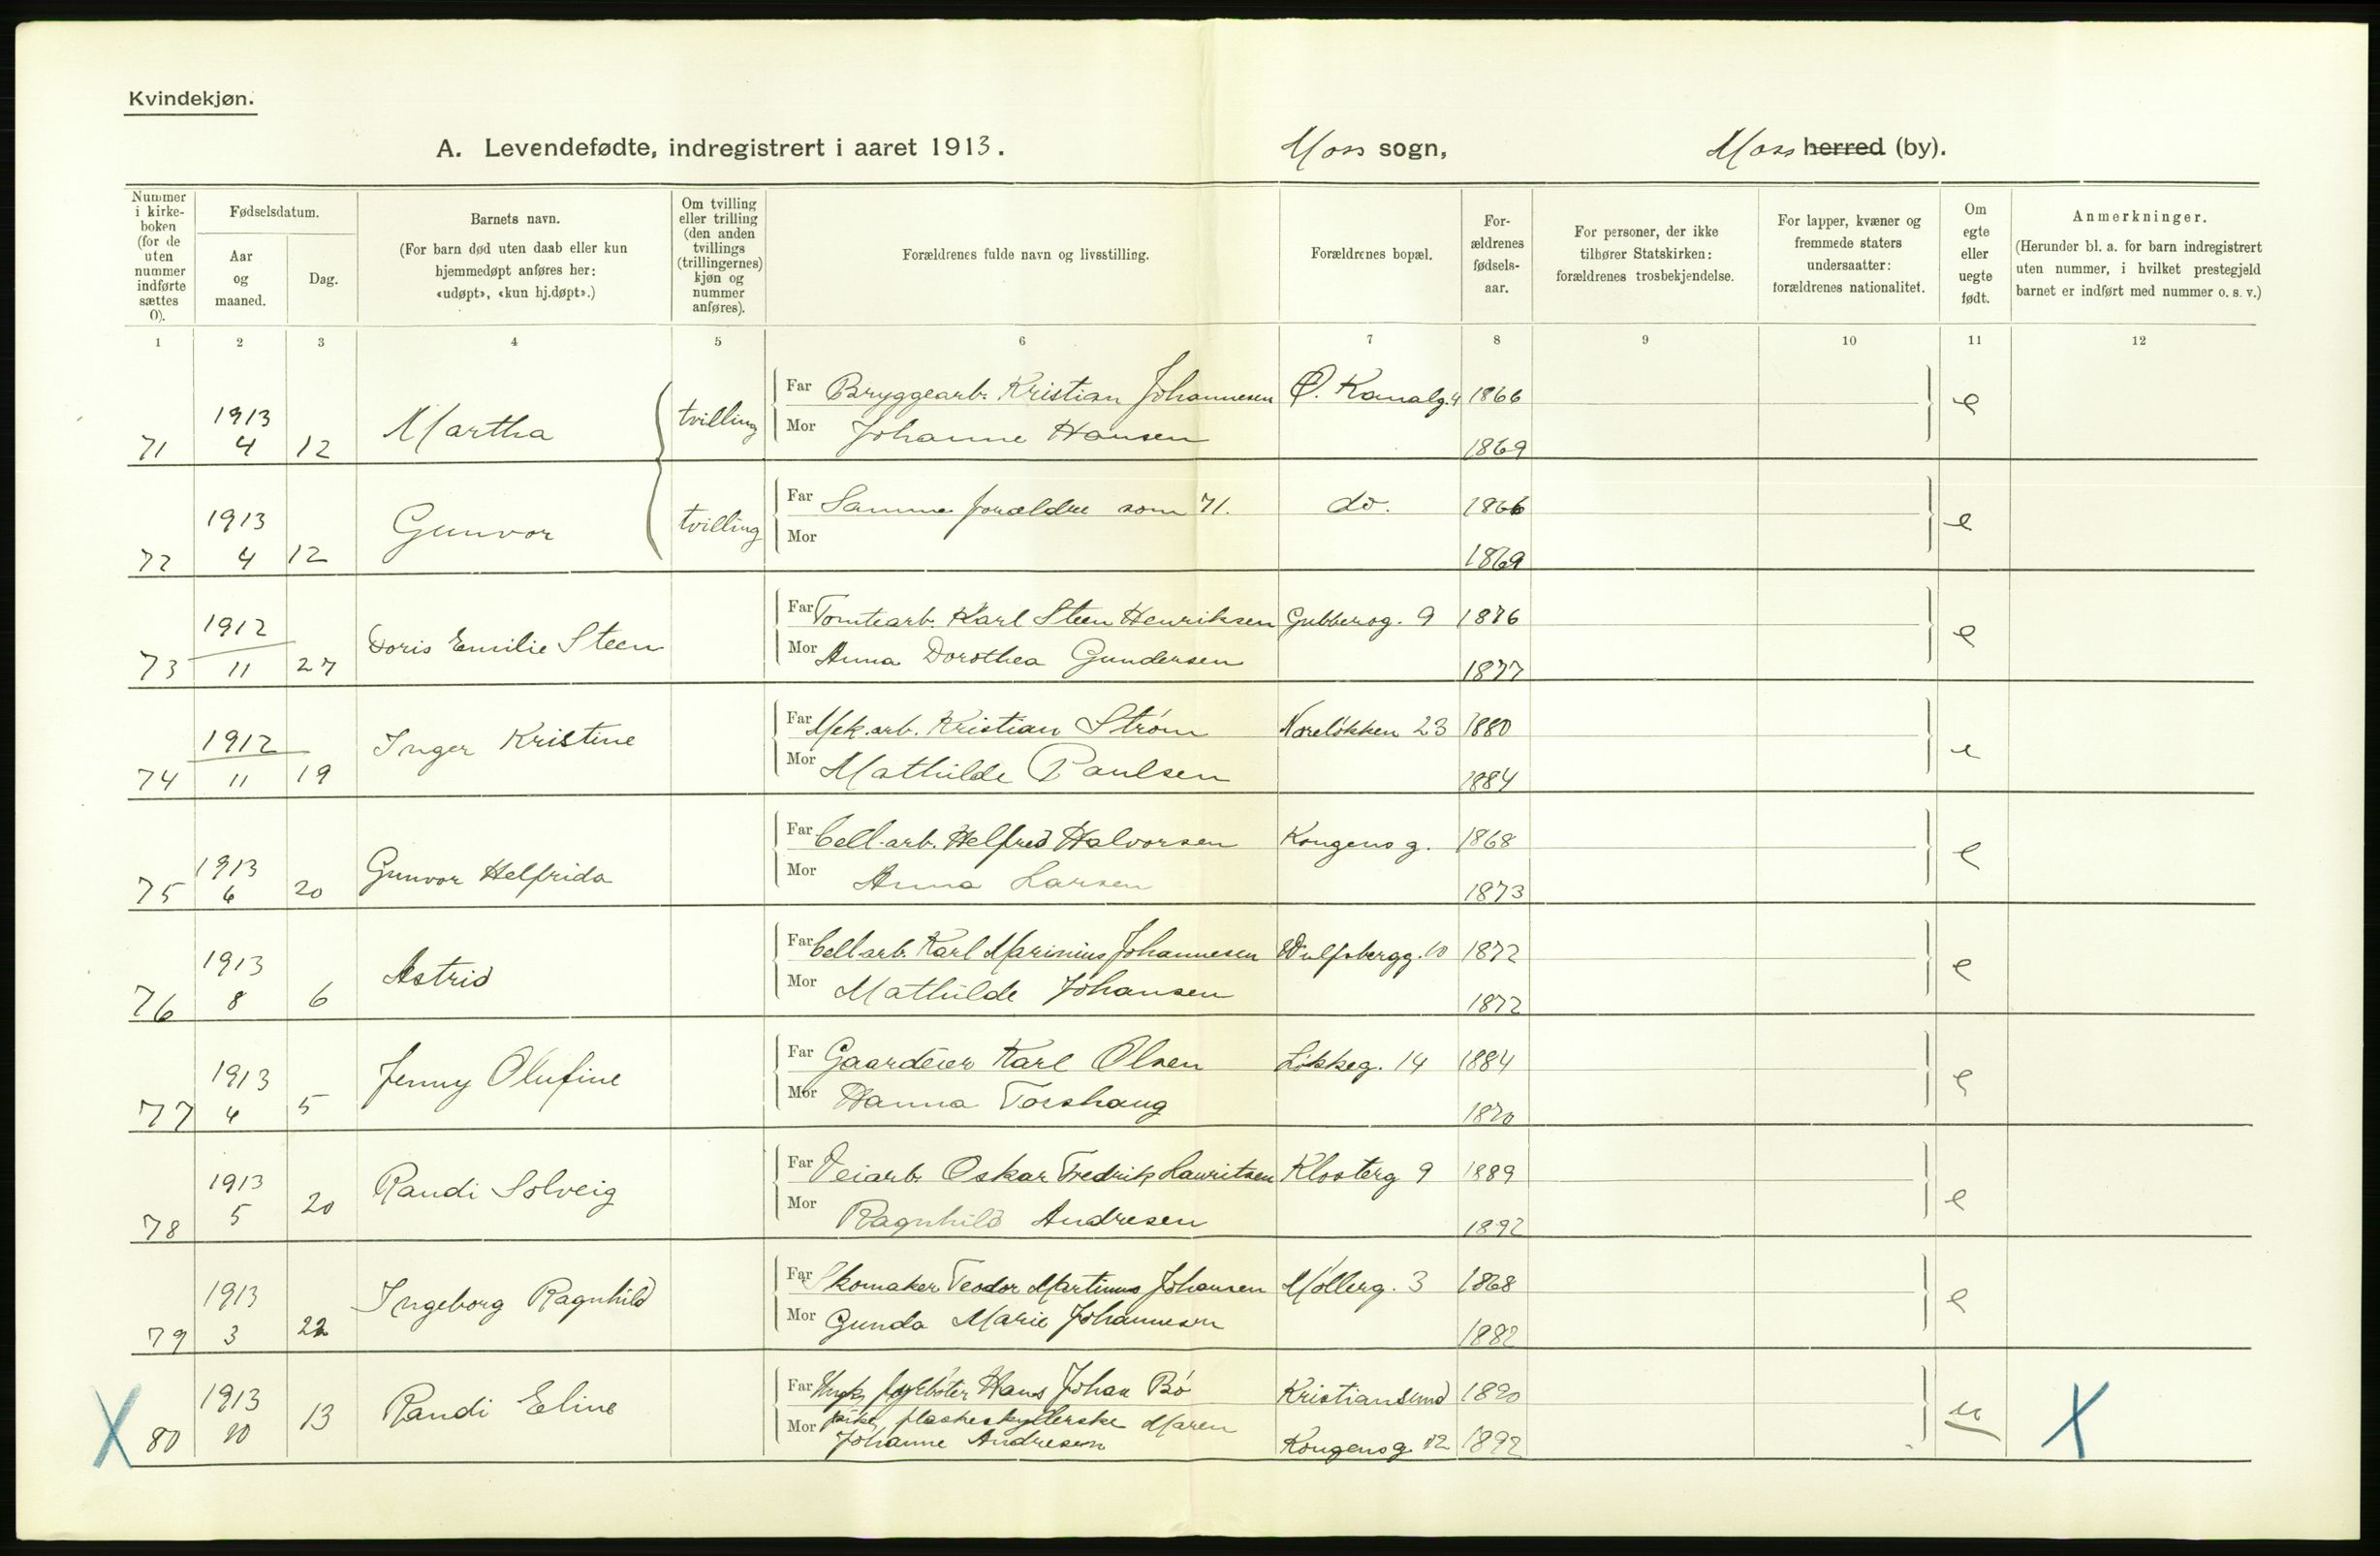 Kvindekjøn.
A. Levendefødte, indregistrert i aaret 1913. Moss sogn, Moss herred (by).
Nummer i kirke-boken (for de uten nummer indførte sættes 0).
Fødselsdatum.
Aar og maaned.
Dag.
Barnets navn.
(For barn død uten daab eller kun hjemmedøpt anføres her: «udøpt», «kun hj.døpt».)
Om tvilling eller trilling (den anden tvillings (trillingernes) kjøn og nummer anføres).
Forældrenes fulde navn og livsstilling.
Forældrenes bopæl.
For-ældrenes fødsels-aar.
For personer, der ikke tilhører Statskirken: forældrenes trosbekjendelse.
For lapper, kvæner og fremmede staters undersaatter: forældrenes nationalitet.
Om egte eller uegte født.
Anmerkninger.
(Herunder bl. a. for barn indregistrert uten nummer, i hvilket prestegjeld barnet er indført med nummer o. s. v.)
1 2 3 4 5 6 7 8 9 10 11 12
71 1913 4 12 Martha tvilling Far Bryggearb. Kristian Johannesen Ø. Kanalg. 4 1866 e
Mor Johanne Hansen 1869
72 1913 4 12 Gunvor tvilling Far Samme forældre som 71. do. 1866 e
Mor 1869
73 1912 11 27 Doris Emilie Steen Far Tomtearb. Karl Steen Henriksen Gubberog. 9 1876 e
Mor Anna Dorothea Gundersen 1877
74 1912 11 19 Inger Kristine Far Mek.arb. Kristian Strøm Noreløkken 23 1880 e
Mor Mathilde Paulsen 1884
75 1913 6 20 Gunvor Helfrida Far Cell.arb. Helfred Halvorsen Kongensg. 1868 e
Mor Anna Larsen 1873
76 1913 8 6 Astrid Far Cellarb. Karl Marinius Johannesen Wulfsbergg. 10 1872 e
Mor Mathilde Johansen 1872
77 1913 4 5 Jenny Olufine Far Gaardeier Karl Olsen Løkkeg. 14 1884 e
Mor Hanna Torshaug 1870
78 1913 5 20 Randi Solveig Far Veiarb. Oskar Fredrik Lauritsen Klosterg 9 1889 e
Mor Ragnhild Andresen 1892
79 1913 3 22 Ingeborg Ragnhild Far Skomaker Teodor Martinus Johansen Møllerg. 3 1868 e
Mor Gunda Marie Johannesen 1882
X 80 1913 10 13 Randi Eline Far Ungk. fyrbøter Hans Johan Bø Kristiansund 1890 u X
Mor pike, flaskeskyllerske Maren
Johanne Andresen Kongensg. 12 1892